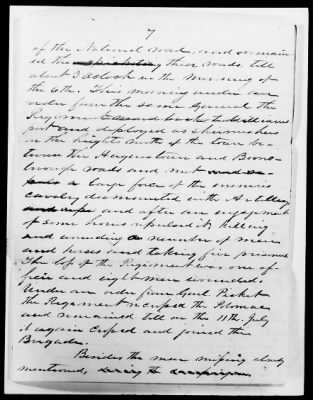 7
of the National road, and on main
ed the picketing these roads, till
about 3 Oclock in the Morning of
the 6th. This morning under an
order from the same General the
Regiment back to Williams
port and deployed as skirmishers
on the heights North of the town be-
tween the Hagerstown and Boons-
borough roads and met
a large force of the enemies
cavalry dismounted with Artillery
and after an engagement
of some hours repulsed it, killing
and wounding a number of men
and horses and taking five prisoners
The loss of the Regiment was one of-
ficer and eight men wounded.
Under an order from Genl Picket
the Regiment recrossed the Potomac
and remained till on the 11th July
it again crossed and joined the
Brigade.
Besides the men missing already
mentioned, during the campaign